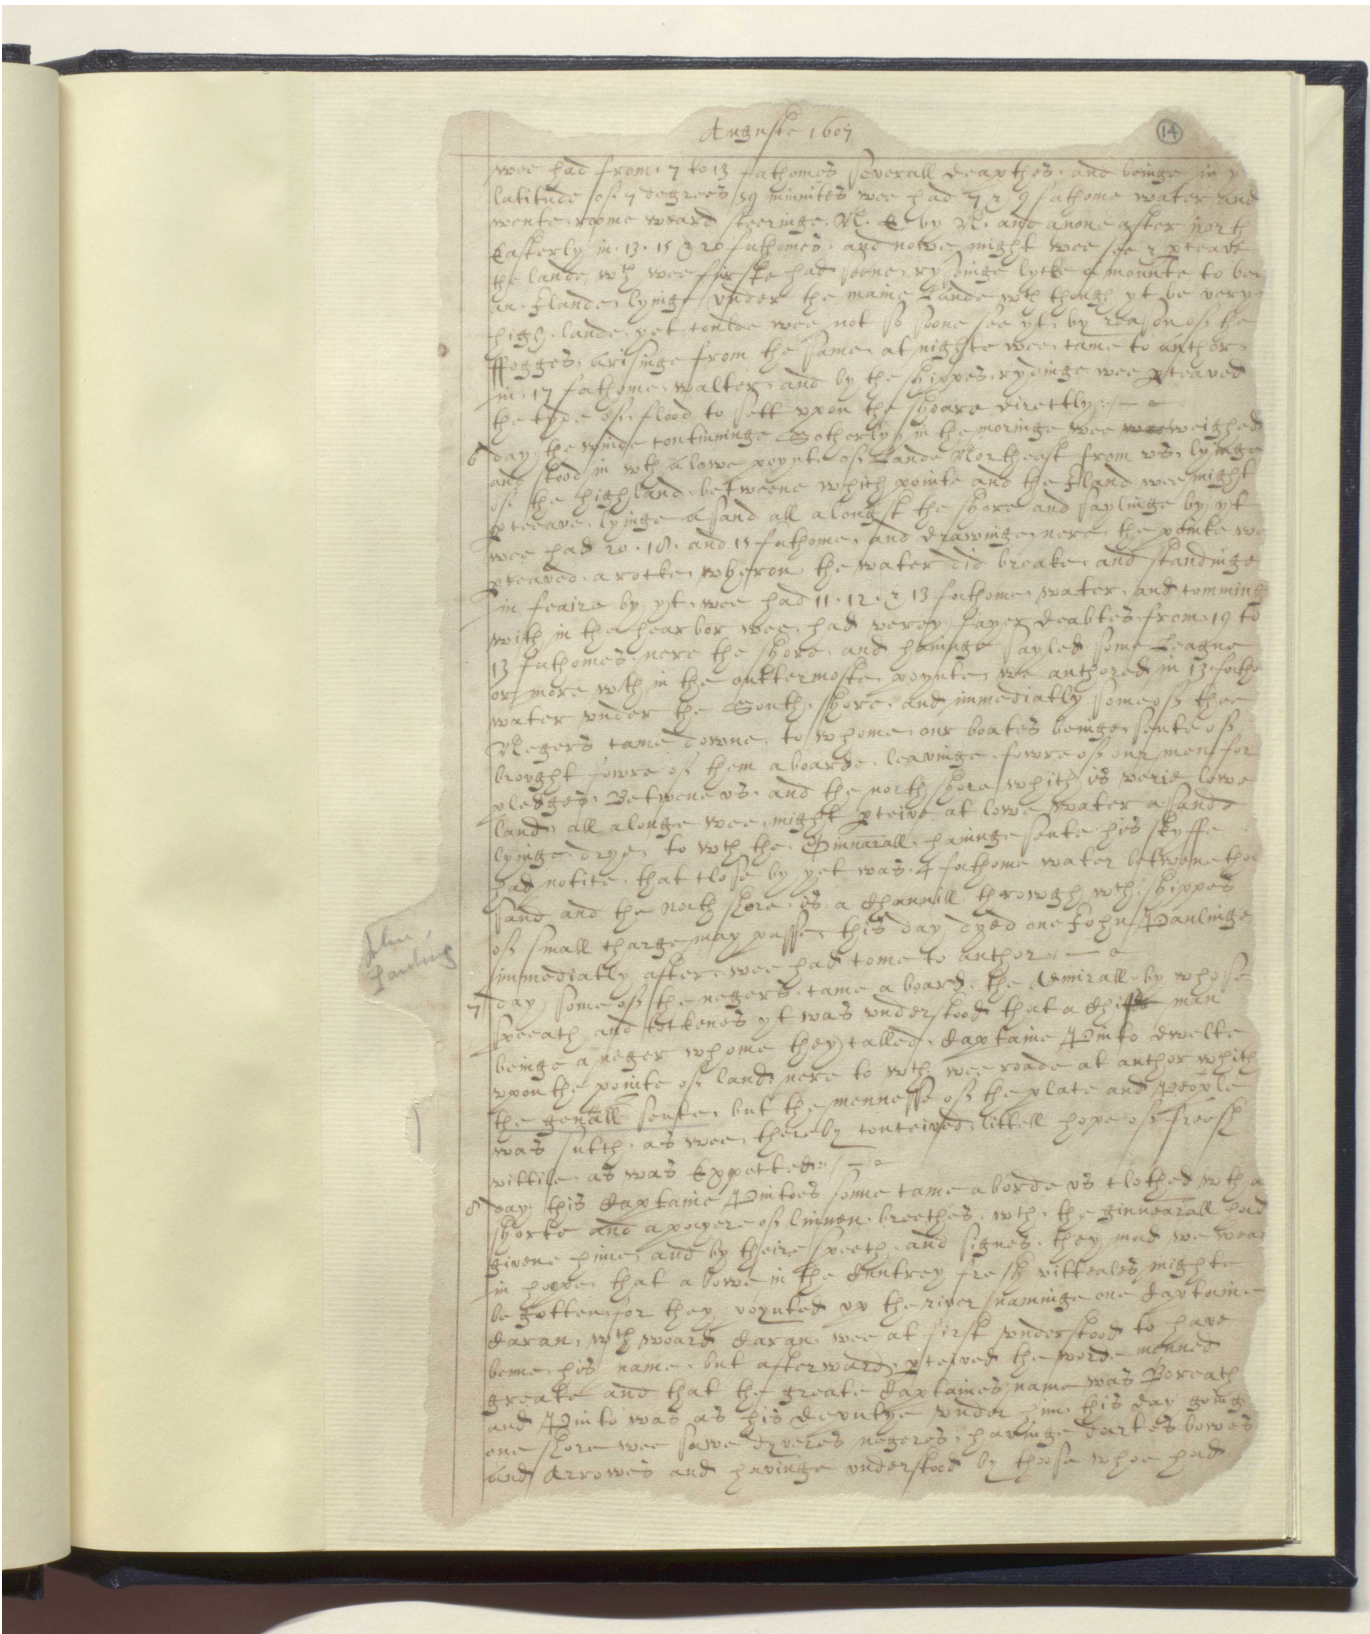 Auguste 1607
14
wee had from 7 to 13 fathomes severall deapthes and beinge in y
latitude of 7 degrees 59 minnites wee had 7 & 9 fathome water and
wente roome ward steeringe N. E by N. and anone after north
Easterly in 13. 15 & 20 fathomes. and nowe might wee see & pceave
the lande wch wee firste had seene ryseinge lycke a mounte to bee
an Ilande lyinge under the maine Lande wch though yt be very
high lande yet coulde wee not so soone see yt by reason of the
ffogges arisinge from the same at nighte wee came to ancher
in 17 fathome walter and by the shippes rydinge wee pceaved
the tyde of flood to sett upon the shoare directly
6 day the winde continuinge Sotherly in the moringe wee weighed
and stood in wth a lowe poynte of Lande Northeast from us lyinge
of the highland betweene which pointe and the Iland wee might
pceeave lyinge a sand all alongst the shore and saylinge by yt
wee had 20. 18. and 15 fathome and drawinge nere the pointe we
pceaved a rocke wheron the water did breake and standinge
in feaire by yt wee had 11. 12. & 13 fathome water and comming
with in the hearbor wee had verey fayer deabtes from 19 to
13 fathomes nere the shore and havinge sayled some Leagne
or more wth in the outtermoste poynte we anchored in 13 fatho
water under the South shore and immediatly some of thee
Negers came downe to whome our boates beinge sente of
brought fowre of them aboarde leavinge fowre of our men for
pledges. Betwene us and the north shore which is verie lowe
land all alonge wee might pceive at lowe water a sand
lyinge drye to wch the Ginnarall havinge sente his skyffe
had notice that close by yet was 4 fathome water betweene the
sand and the North shore is a Channill throwgh wch shippes
of small charge may passe this day dyed one John Paulinge
immediatly after wee had come to anchor
John
Paulinge
7 day some of the negers came aboard the Admirall by whose
speeach and tokenes yt was understood that a Chiffe man
beinge a neger whome they called Captaine Pinto dwelte
upon the pointe of land nere to wch wee roade at anchor which
the genall sente but the mennesse of the place and People
was sutch as wee thereby conceived littell hope of freesh
vittils as was Expected
8 day this Captaine Pintoes sonne came aborde us clothed wth a
shorte and a payere of linnen breeches wch the ginnearall had
givene hime and by theire speech and signes they mad we wear
in hoope that above in the Cuntrey fresh vitteales mighte
be gotten for they poynted up the river naminge one Captaine
Caran wch woard Caran wee at first understood to have
beene his name but afterward pceived the worde menned
greate and that the greate Captaines name was Boreath
and Pinto was as his deputye under him this day going
one shore wee sawe dyveres negeres havinge dartes bowes
and Arrowes and havinge understood by those whoe had